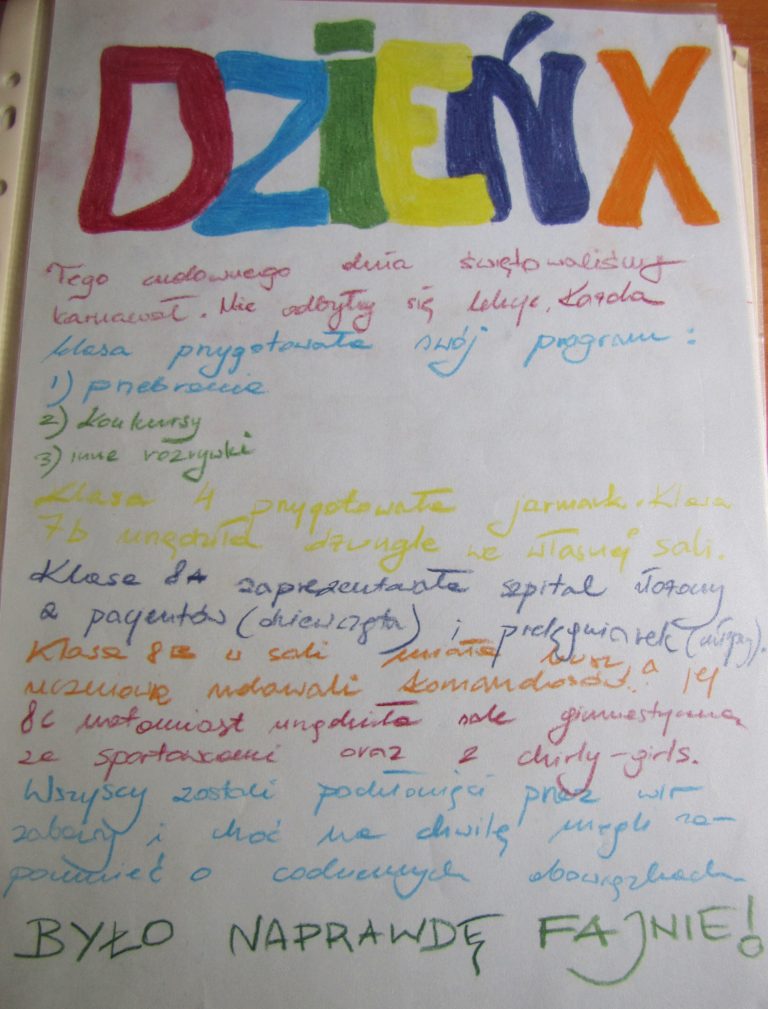 DZIEŃ X
Tego cudownego dnia świętowaliśmy
karnawał. Nie odbyły się lekcje. Każda
klasa przygotowała swój program:
1) przebranie
2) konkursy
3) inne rozrywki
Klasa 4 przygotowała jarmark. Klasa
7b urządziła dżunglę we własnej sali.
Klasa 8A zaprezentowała szpital złożony
z pacjentów (dziewczęta) i pielęgniarek (chłopcy).
Klasa 8B w sali miała busz, a
uczniowie udawali komandosów.
8C natomiast urządziła salę gimnastyczną
ze sportowcami oraz z chirly-girls.
Wszyscy zostali pochłonięci przez wir
zabawy i choć na chwilę mogli za-
pomnieć o codziennych obowiązkach
BYŁO NAPRAWDĘ FAJNIE!